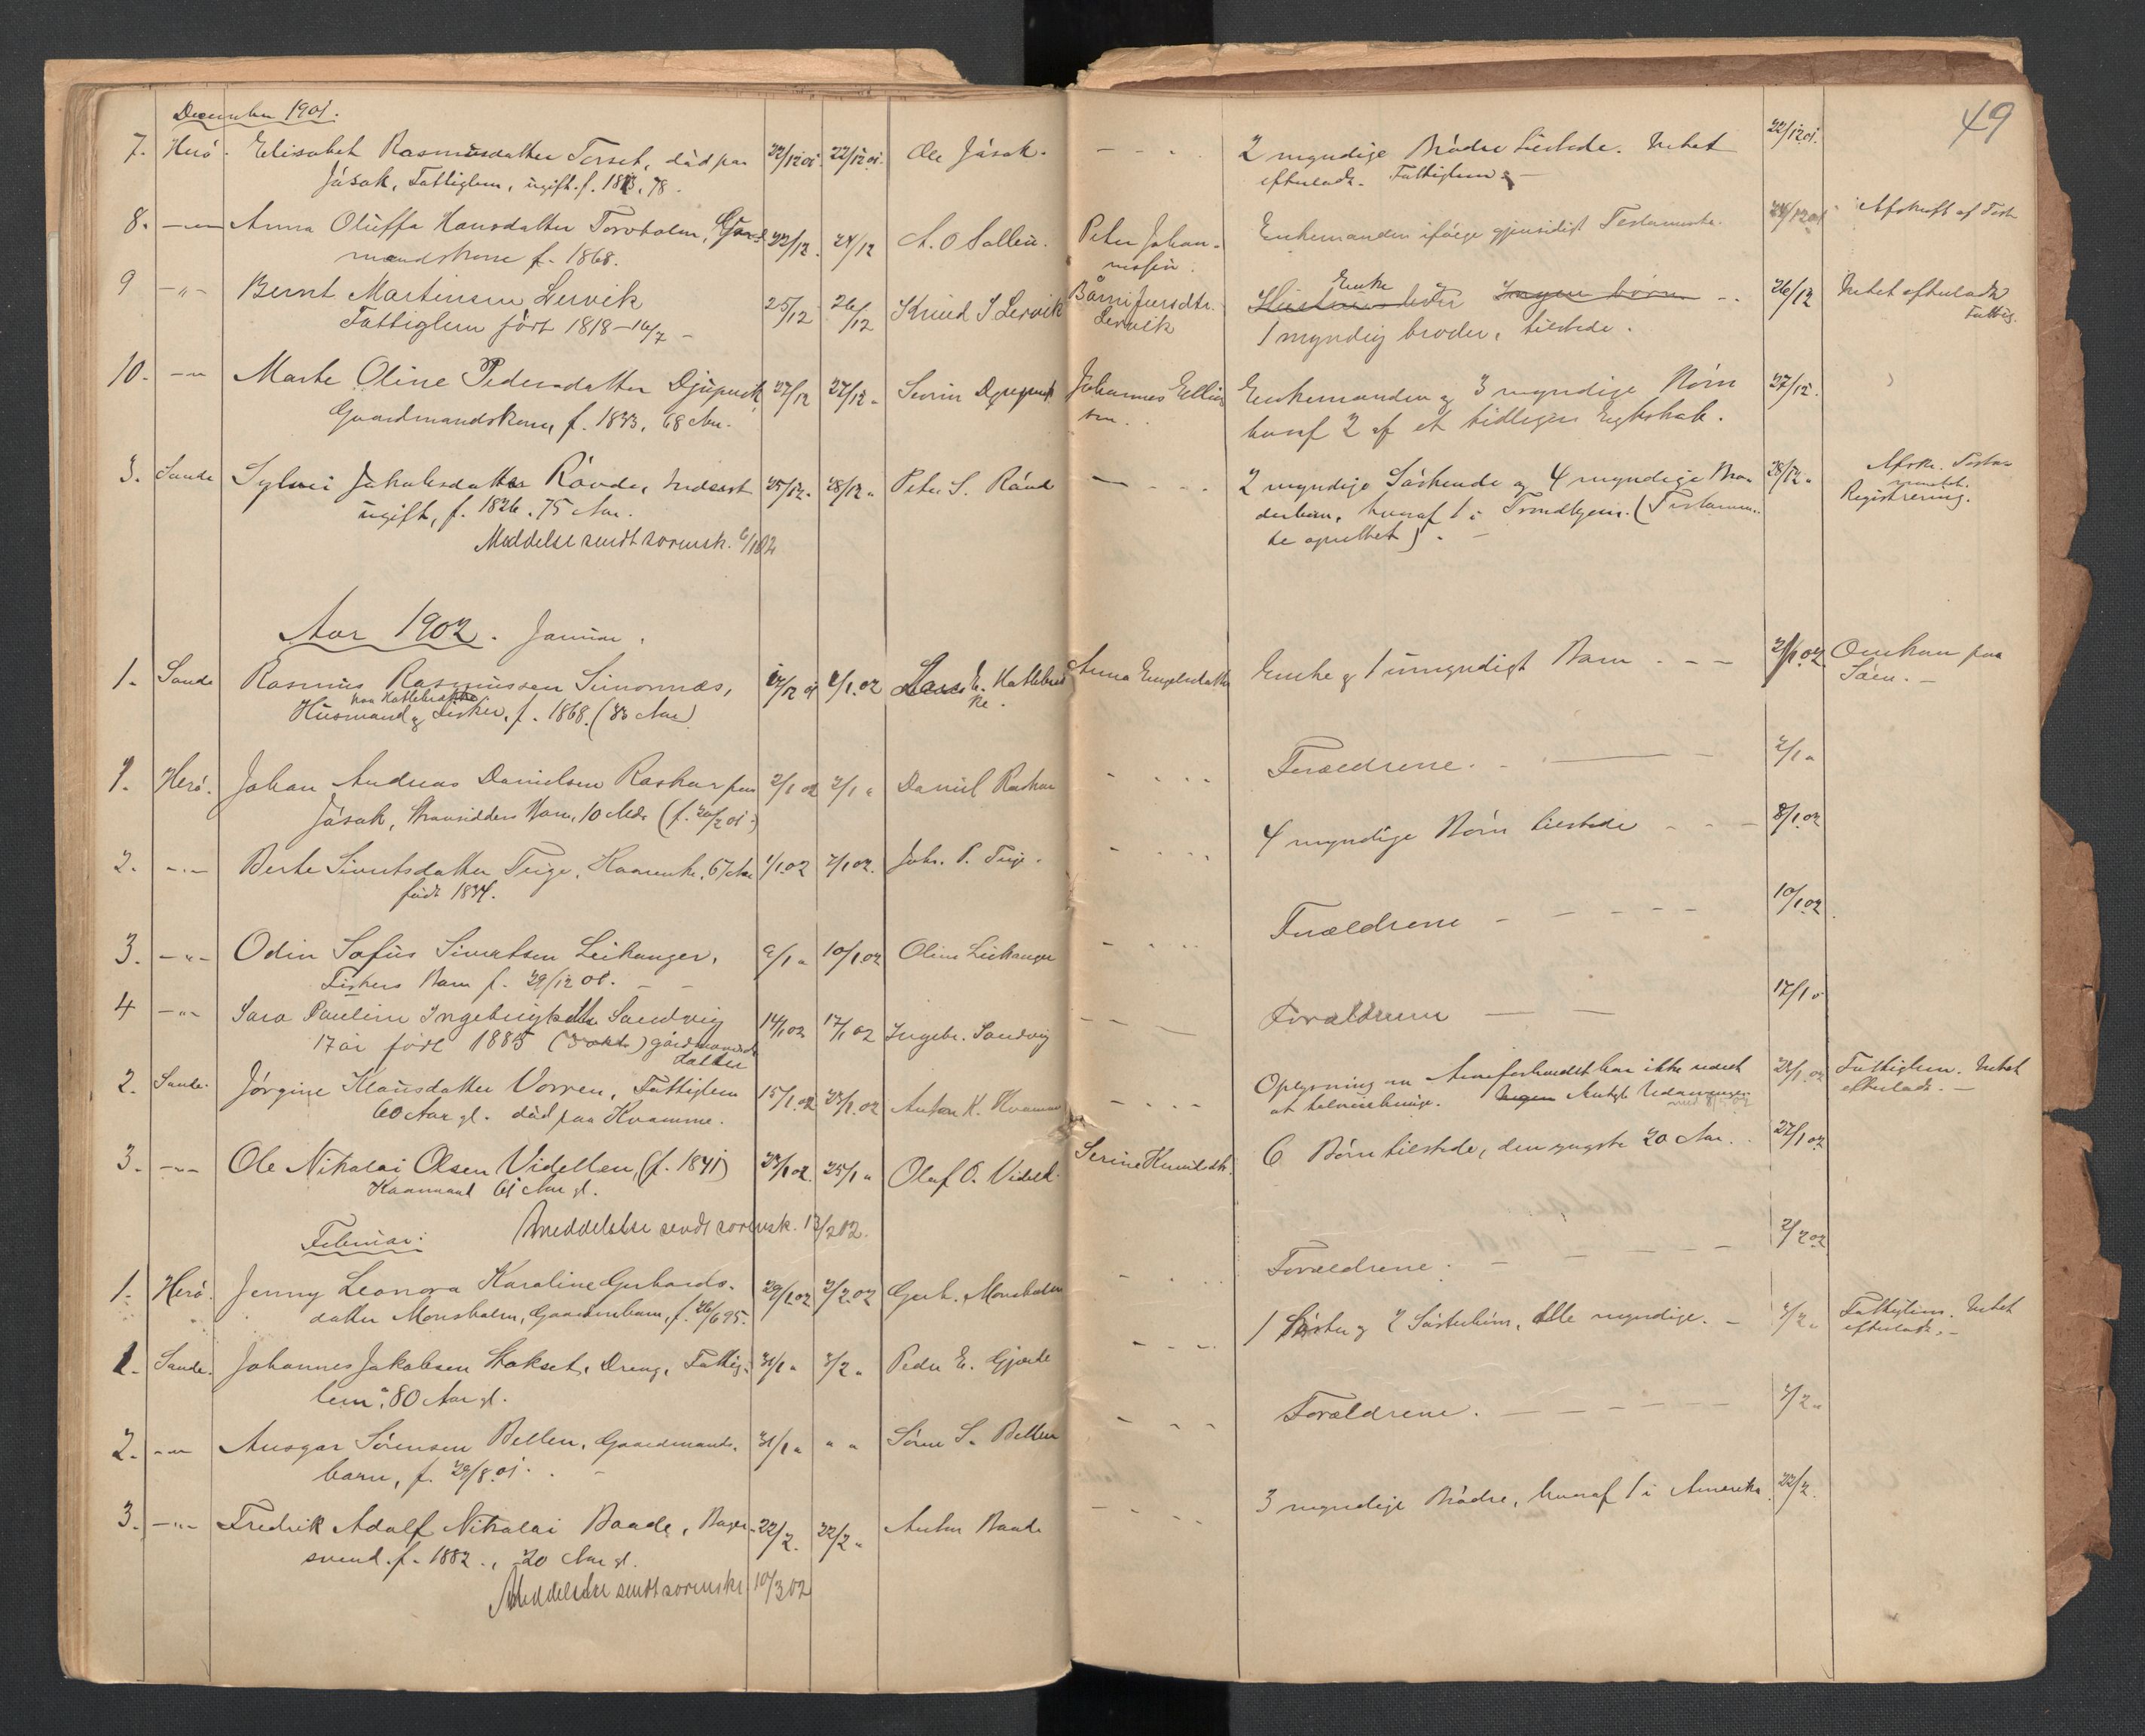 December 1901.
49
7. Herö. Elisabet Rasmusdatter Torset, död paa 22/12 01. 22/12 01. Ole Jösok. - - - 2 myndige Brödre tilstede. Intet 22/12 01.
Jösok, Fattiglem, ugift. f. 1823, 78. efterladt. Fattiglem. -
8. -"- Anna Oluffa Hansdatter Torvholm, Gaard- 22/12. 24/12 A. O. Peter Johan- Enkemanden ifölge gjensidigt Testamente. 24/12 01 Afskrift af Test.
mandskone f. 1868. nessen.
9 -"- Bernt Martinsen Lervik 25/12 26/12 Knud S Lervik Enke 26/12 Intet efterladt
Fattiglem födt 1818-16/7 - Lervik 1 myndig broder, tilstede. fattig.
10. -"- Marte Oline Pedersdatter Djupvik 27/12 27/12 " Sevrin Djupvik Johannes Elling- Enkemanden og 3 myndige Börn 27/12.
Gaardmandskone, f. 1833, 68 Aar. sen. hvoraf 2 af et tidligere Egteskab.
3. Sande Sylvei Jakobsdatter Rövde, Inderst 25/12. 28/12 " Peter S. Rövd - - - 2 myndige Söskende og 4 myndige Bro- 28/12 " Afskr. Testa-
ugift, f. 1826. 75 Aar. derbörn, hvoraf 1 i Trondhjem. (Testamen- mentet.
Meddelse sendt sorensk. 6/1 02 te oprettet). - Registrering.
Aar 1902. Januar.
1. Sande Rasmus Rasmussen Simonnæs, 17/12 01 2/1.02 Lars E. Hatlebrek- Anna Engelsdatter Enke og 1 umyndigt Barn. - - 2/1.02 Omkom paa
paa Hatlebrekke ke. Söen. -
Husmand og Fisker, f. 1868. (33 Aar)
1. Herö. Johan Andreas Danielsen Raskar paa 2/1 02 2/1 " Daniel Raskar - - - Forældrene. - 2/1 "
Jösok, Strandsidders Barn, 10 Mdr (f. 20/2 01.)
2. -"- Berte Sivertsdatter Teige, Kaarenke, 67 Aar 1/1.02 7/1.02. Joh. P. Teige. - - - 4 myndige Börn tilstede - - - 8/1.02
födt 1834.
3. -"- Odin Sofus Sivertsen Leikanger, 9/1 " 10/1.02 Oline Leikanger - - - Forældrene - - - 10/1.02
Fiskers Barn f. 29/12 01. - -
4 -"- Sara Pauline Ingebrigtsdtr Sandvig 14/1 02 17/1 02 Ingebr. Sandvig - - - Forældrene - - 17/1 "
17 år födt 1885 (3 okt.) gårdmands
datter
2. Sande. Jörgine Klausdatter Vorren, Fattiglem 15/1.02 23/1.02 Anton K. Kvamme - - - Oplysning om Arveforholdet har ikke været 23/1.02 Fattiglem. Intet
60 Aar gl. död paa Kvamme. at efterladt. -
3. -"- Ole Nikolai Olsen Videllen, (f. 1841) 23/1 02. 25/1 " Olaf O. Videll. Serine Knudsdtr. 6 Börn tilstede, den yngste 20 Aar. 27/1 02
Kaarmand 61 Aar gl.
Meddelelse sendt sorensk. 13/2 02.
Februar:
1. Herö. Jenny Leonora Karoline Gerhards- 29/1.02 2/2.02 Gerh. Monsholm - - - Forældrene. - - - 2/2 02
datter Monsholm, Gaardmbarn, f. 26/6 95.
1. Sande. Johannes Jakobsen Stokset, Dreng, Fattig- 31/1 " 3/2 " Peder E. Gjærde - - - 1 Söster og 2 Sösterbörn, alle myndige. - 3/2 " Fattiglem. Intet
lem, 80 Aar gl. efterladt. -
2. -"- Ansgar Sörensen Bellen, Gaardmands- 31/1 " " " Sören S. Bellen - - - Forældrene. - - - 3/2 "
barn, f. 29/8.01.
3. -"- Fredrik Adolf Nikolai Baade, Bager- 22/2. 22/2 " Anton Baade - - - 3 myndige Brödre, hvoraf 1 i Amerika 22/2.
svend. f. 1882., 20 Aar gl.
Meddelelse sendt sorenskr 10/3 02